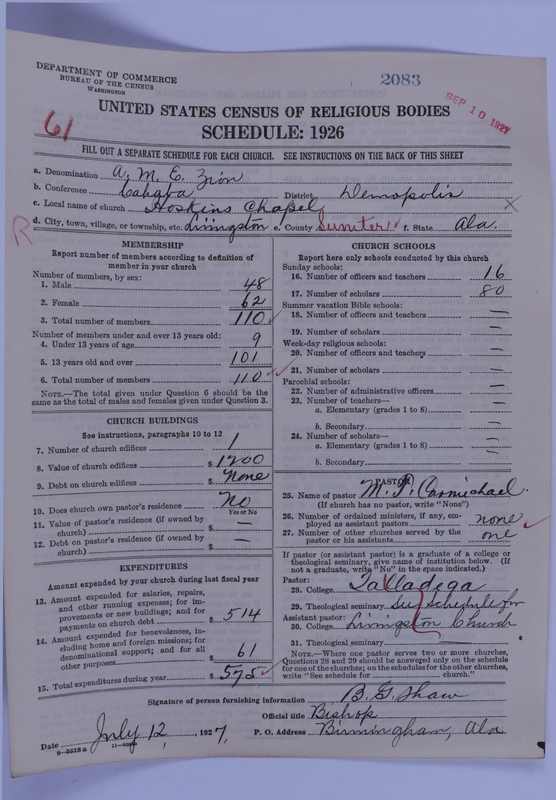 DEPARTMENT OF COMMERCE
BUREAU OF THE CENSUS
WASHINGTON
2083
SEP 10 1927
61
UNITED STATES CENSUS OF RELIGIOUS BODIES
SCHEDULE: 1926
FILL OUT A SEPARATE SCHEDULE FOR EACH CHURCH. SEE INSTRUCTIONS ON THE BACK OF THIS SHEET
a. Denomination A. M. E. Zion
b. Conference Cahaba District Demopolis
c. Local name of church Hoskins Chapel X
R
d. City, town, village, or township, etc. Livingston e. County Sumter f. State Ala.
MEMBERSHIP
Report number of members according to definition of
member in your church
Number of members, by sex:
1. Male 48
2. Female 62
3. Total number of members 110
Number of members under and over 13 years old:
4. Under 13 years of age 9
5. 13 years old and over 101
6. Total number of members 110
NOTE.—The total given under Question 6 should be the
same as the total of males and females given under Question 3.
CHURCH BUILDINGS
See instructions, paragraphs 10 to 12
7. Number of church edifices 1
8. Value of church edifices $ 1200
9. Debt on church edifices $ None
10. Does church own pastor's residence No
Yes or No
11. Value of pastor's residence (if owned by
church) $ —
12. Debt on pastor's residence (if owned by
church) $ —
EXPENDITURES
Amount expended by your church during last fiscal year
13. Amount expended for salaries, repairs,
and other running expenses; for im-
provements or new buildings; and for
payments on church debt $ 514
14. Amount expended for benevolences, in-
cluding home and foreign missions; for
denominational support; and for all
other purposes $ 61
15. Total expenditures during year $ 575
CHURCH SCHOOLS
Report here only schools conducted by this church
Sunday schools:
16. Number of officers and teachers 16
17. Number of scholars 80
Summer vacation Bible schools:
18. Number of officers and teachers —
19. Number of scholars —
Week-day religious schools:
20. Number of officers and teachers —
21. Number of scholars —
Parochial schools:
22. Number of administrative officers —
23. Number of teachers—
a. Elementary (grades 1 to 8) —
b. Secondary —
24. Number of scholars—
a. Elementary (grades 1 to 8) —
b. Secondary —
PASTOR
25. Name of pastor M. P. Carmichael.
(If church has no pastor, write "None")
26. Number of ordained ministers, if any, em-
ployed as assistant pastors none
27. Number of other churches served by the
pastor or his assistants one
If pastor (or assistant pastor) is a graduate of a college or
theological seminary, give name of institution below. (If
not a graduate, write "No" in the space indicated.)
Pastor:
28. College Talladega
29. Theological seminary See Schedule for
Assistant pastor:
30. College Livingston Church
31. Theological seminary
NOTE.—Where one pastor serves two or more churches,
Questions 28 and 29 should be answered only on the schedule
for one of the churches; on the schedules for the other churches,
write "See schedule for church."
Signature of person furnishing information B. G. Shaw
Official title Bishop
Date July 12, 1927, P. O. Address Birmingham, Ala